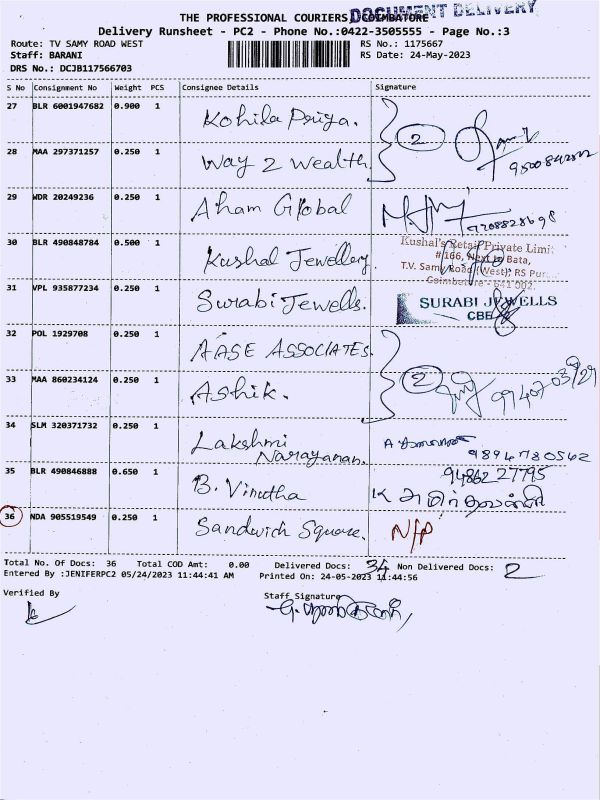 DOCUMENT DELIVERY
THE PROFESSIONAL COURIERS, COIMBATORE
Delivery Runsheet - PC2 - Phone No.:0422-3505555 - Page No.:3
Route: TV SAMY ROAD WEST RS No.: 1175667
Staff: BARANI RS Date: 24-May-2023
DRS No.: DCJB117566703
S No Consignment No Weight PCS Consignee Details Signature
27 BLR 6001947682 0.900 1 Kohila Priya.
2
28 MAA 297371257 0.250 1 Way 2 Wealth.
29 WDR 20249236 0.250 1 Aham Global
9208828698
30 BLR 490848784 0.500 1 Kushal Jewellery
Kushal's Retail Private Limi
# 166, Next to Bata,
T.V. Samy Road (West), RS Pur
Coimbatore - 641 002.
31 VPL 935877234 0.250 1 Surabi Jewells.
SURABI JEWELLS
CBE
32 POL 1929708 0.250 1 AASE ASSOCIATES.
2
33 MAA 860234124 0.250 1 Ashik.
34 SLM 320371732 0.250 1 Lakshmi Narayanan.
9894780562
35 BLR 490846888 0.650 1 B. Vinutha
9486227795
36 NDA 905519549 0.250 1 Sandwich Square. N/P
Total No. Of Docs: 36 Total COD Amt: 0.00 Delivered Docs: 34 Non Delivered Docs: 2
Entered By :JENIFERPC2 05/24/2023 11:44:41 AM Printed On: 24-05-2023 11:44:56
Verified By Staff Signature